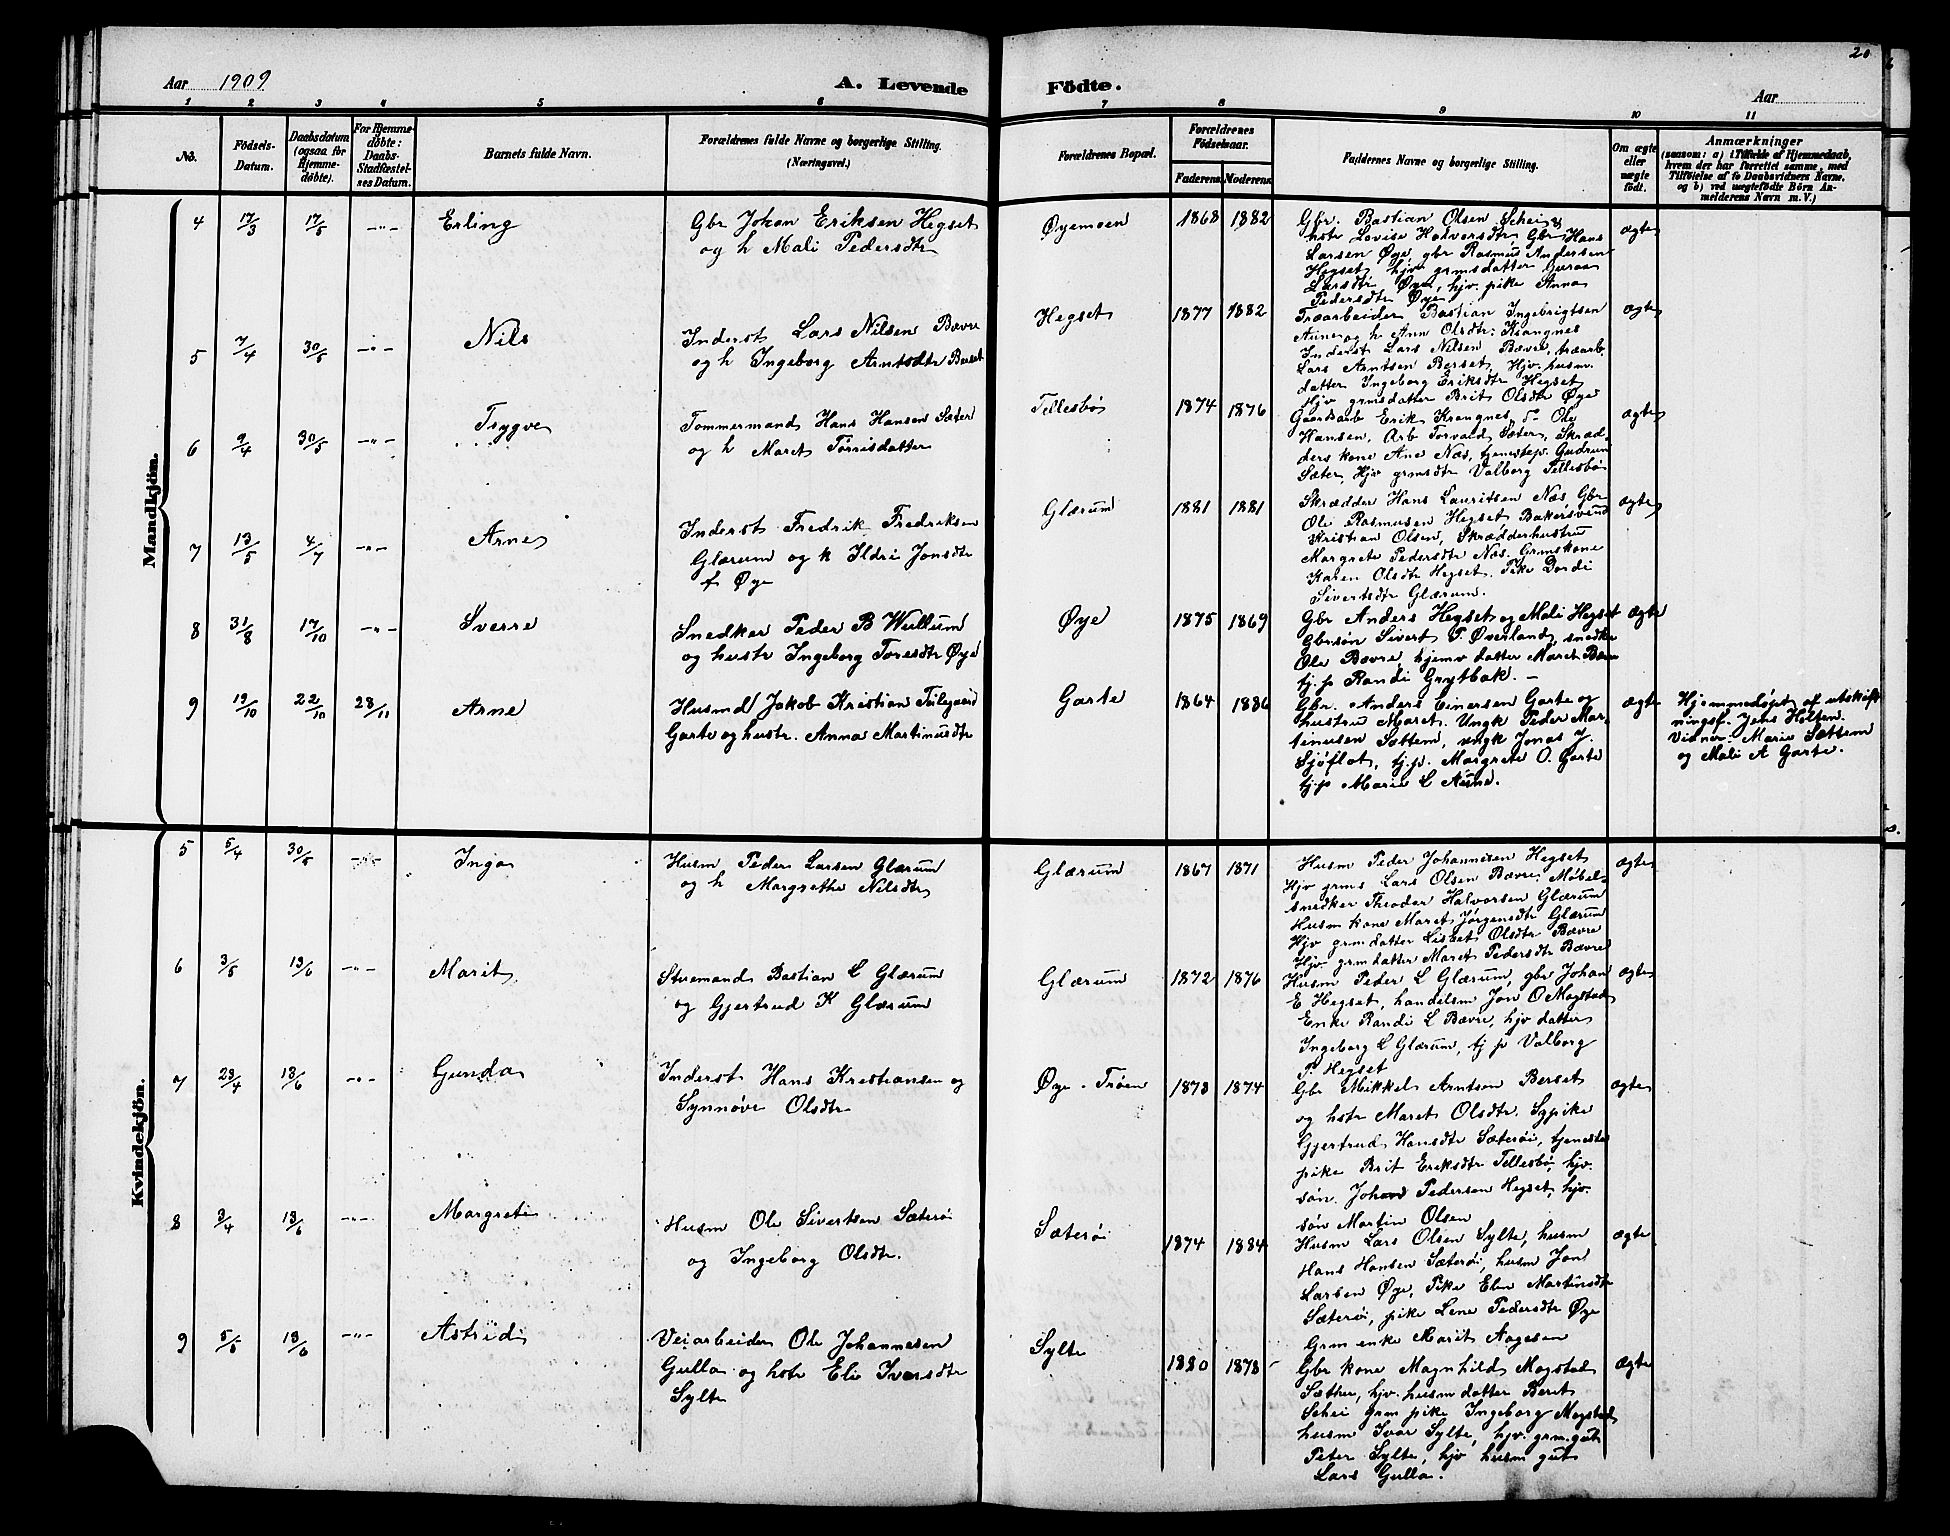 20
Aar 1909 A. Levende Födte. Aar
1 2 3 4 5 6 7 8 9 10 11
No.
Födsels-
Datum.
Daabsdatum
(ogsaa for
Hjemme-
döbte).
For Hjemme-
döbte:
Daabs-
Stadfæstel-
ses Datum.
Barnets fulde Navn.
Forældrenes fulde Navne og borgerlige Stilling.
(Næringsvei.)
Forældrenes Bopæl.
Forældrenes
Födselsaar.
Faderens. Moderens.
Faddernes Navne og borgerlige Stilling.
Om ægte
eller
uægte
født.
Anmærkninger
(saasom: a) i Tilfælde af Hjemmedaab,
hvem der har forrettet samme, med
Tilföielse af to Daabsvidners Navne,
og b) ved uægtefödte Börn An-
melderens Navn m. V.)
Mandkjön.
4 17/3 17/5 -"- Erling
Gbr Johan Eriksen Hegset
og h Mali Pedersdtr
Øyemoen 1868 1882
Gbr. Bastian Olsen Schei og
hstr Lovise Halversdtr, Gbr Hans
Larsen Øye, gbr Rasmus Andersen
Hegset, hjv grmsdatter Guroa
Larsdtr Øye, hjv. pike Anna
Pedersdtr Øye
ægte
5 7/4 30/5 -"- Nils
Inderst Lars Nilsen Bævre
og h Ingeborg Arntsdtr Berset
Hegset 1877 1882
Træarbeider Bastian Ingebrigtsen
Aune og h Ann Olsdtr: Krangnes
Inderst Lars Nilsen Bævre, træarb.
Lars Arntsen Berset, Hjv. husm.
datter Ingeborg Eriksdtr Hegset
Hjv grmsdatter Brit Olsdtr Øye
ægte
6 9/4 30/5 -"- Trygve
Tømmermand Hans Hansen Sæter
og h Maret Tørrisdatter
Tellesbø 1874 1876
Gaardarb Erik Krangnes, do Ole
Hansen, Arb Torvald Sæter, Skræd-
ders kone Ane Næs, tjenestep. Gudrun
Sæter, Hjv grmsdtr Valborg Tellesbø
ægte
7 13/5 4/7 -"- Arne
Inderst Fredrik Fredriksen
Glærum og k Ildri Jonsdtr
f Øye
Glærum 1881 1881
Skrædder Hans Lauritsen Næs, Gbr
Ole Rasmusen Hegset, Bakersvend
Kristian Olsen, Skrædderhustru
Margrete Pedersdtr Næs. Grmskone
Karen Olsdtr Hegset. Pike Dordi
Sivertsdtr Glærum.
ægte
8 31/8 17/10 -"- Sverre
Snedker Peder B Wullum
og hustr Ingeborg Toresdtr Øye
Øye 1875 1869
Gbr Anders Hegset og Mali Hegset
Gbrsøn Sivert P. Øverland, snedker
Ole Bævre, hjemv datter Maret Bævre
tj.p Randi Grytbak. –
ægte
9 19/10 22/10 28/11 Arne
Husmd Jakob Kristian
Garte og hustr. Anna Martinusdtr
Garte 1864 1886
Gbr. Anders Einersen Garte og
hustru Maret. Ungk Peder Mar-
tinusen Sættem, ungk Jonas J.
Sjøflot, tj.p. Margrete O. Garte
tj.p Marie L Aune.
ægte
Hjemmedøpt af utskift-
ningsf. Jens Holten.
Vidner: Marie Sættem
og Mali A Garte.
Kvindekjön.
5 5/4 30/5 -"- Inga
Husm Peder Larsen Glærum
og h Margrethe Nilsdtr
Glærum 1867 1871
Husm Peder Johannesen Hegset
Hjv grms Lars Olsen Bævre. Møbel-
snedker Theodor Halvorsen Glærum
Husm kone Maret Jørgensdtr Glærum
Hjv grm datter Lisbet Olsdtr Bævre
Hjv. grm datter Maret Pedersdtr Bævre
ægte
6 3/5 13/6 -"- Marit
Stuemand Bastian L Glærum
og Gjertrud K Glærum
Glærum 1872 1876
Husm Peder L Glærum, gbr Johan
E Hegset, handelsm Jon O Mogstad
Enke Randi L Bævre, hjv datter
Ingeborg L Glærum, tj p Valborg
P. Hegset
ægte
7 29/4 13/6 -"- Gunda
Inderst Hans Kristiansen og
Synnøve Olsdtr
Øye - Trøen 1873 1874
Gbr Mikkel Arntsen Berset
og hstr Maret Olsdtr. Sypike
Gjertrud Hansdtr Sæterøi, tjeneste
pike Brit Eriksdtr Tellesbø, hjv.
søn. Johan Pedersen Hegset, hjv.
søn Martin Olsen
ægte
8 3/4 13/6 -"- Margrete
Husm Ole Sivertsen Sæterøi
og Ingeborg Olsdtr.
Sæterøi 1874 1884
Husm Lars Olsen Sylte, husm
Hans Hansen Sæterøi, husm Jon
Larsen Øye, Pike Elen Martinsdtr
Sæterøi, pike Lene Pedersdtr Øye
Grm enke Marit Aagesen
ægte
9 5/5 13/6 -"- Astrid
Veiarbeider Ole Johannesen
Gulla og hstr Eli Iversdtr
Sylte
Sylte 1880 1878
Gbr kone Magnhild Mogstad
Sæther, hjv. husm datter Beret
Schei grm pike Ingeborg Mogstad
husm Ivar Sylte, hjv. grm.gut
Peter Sylte, hjv husm gut
Lars Gulla.
ægte